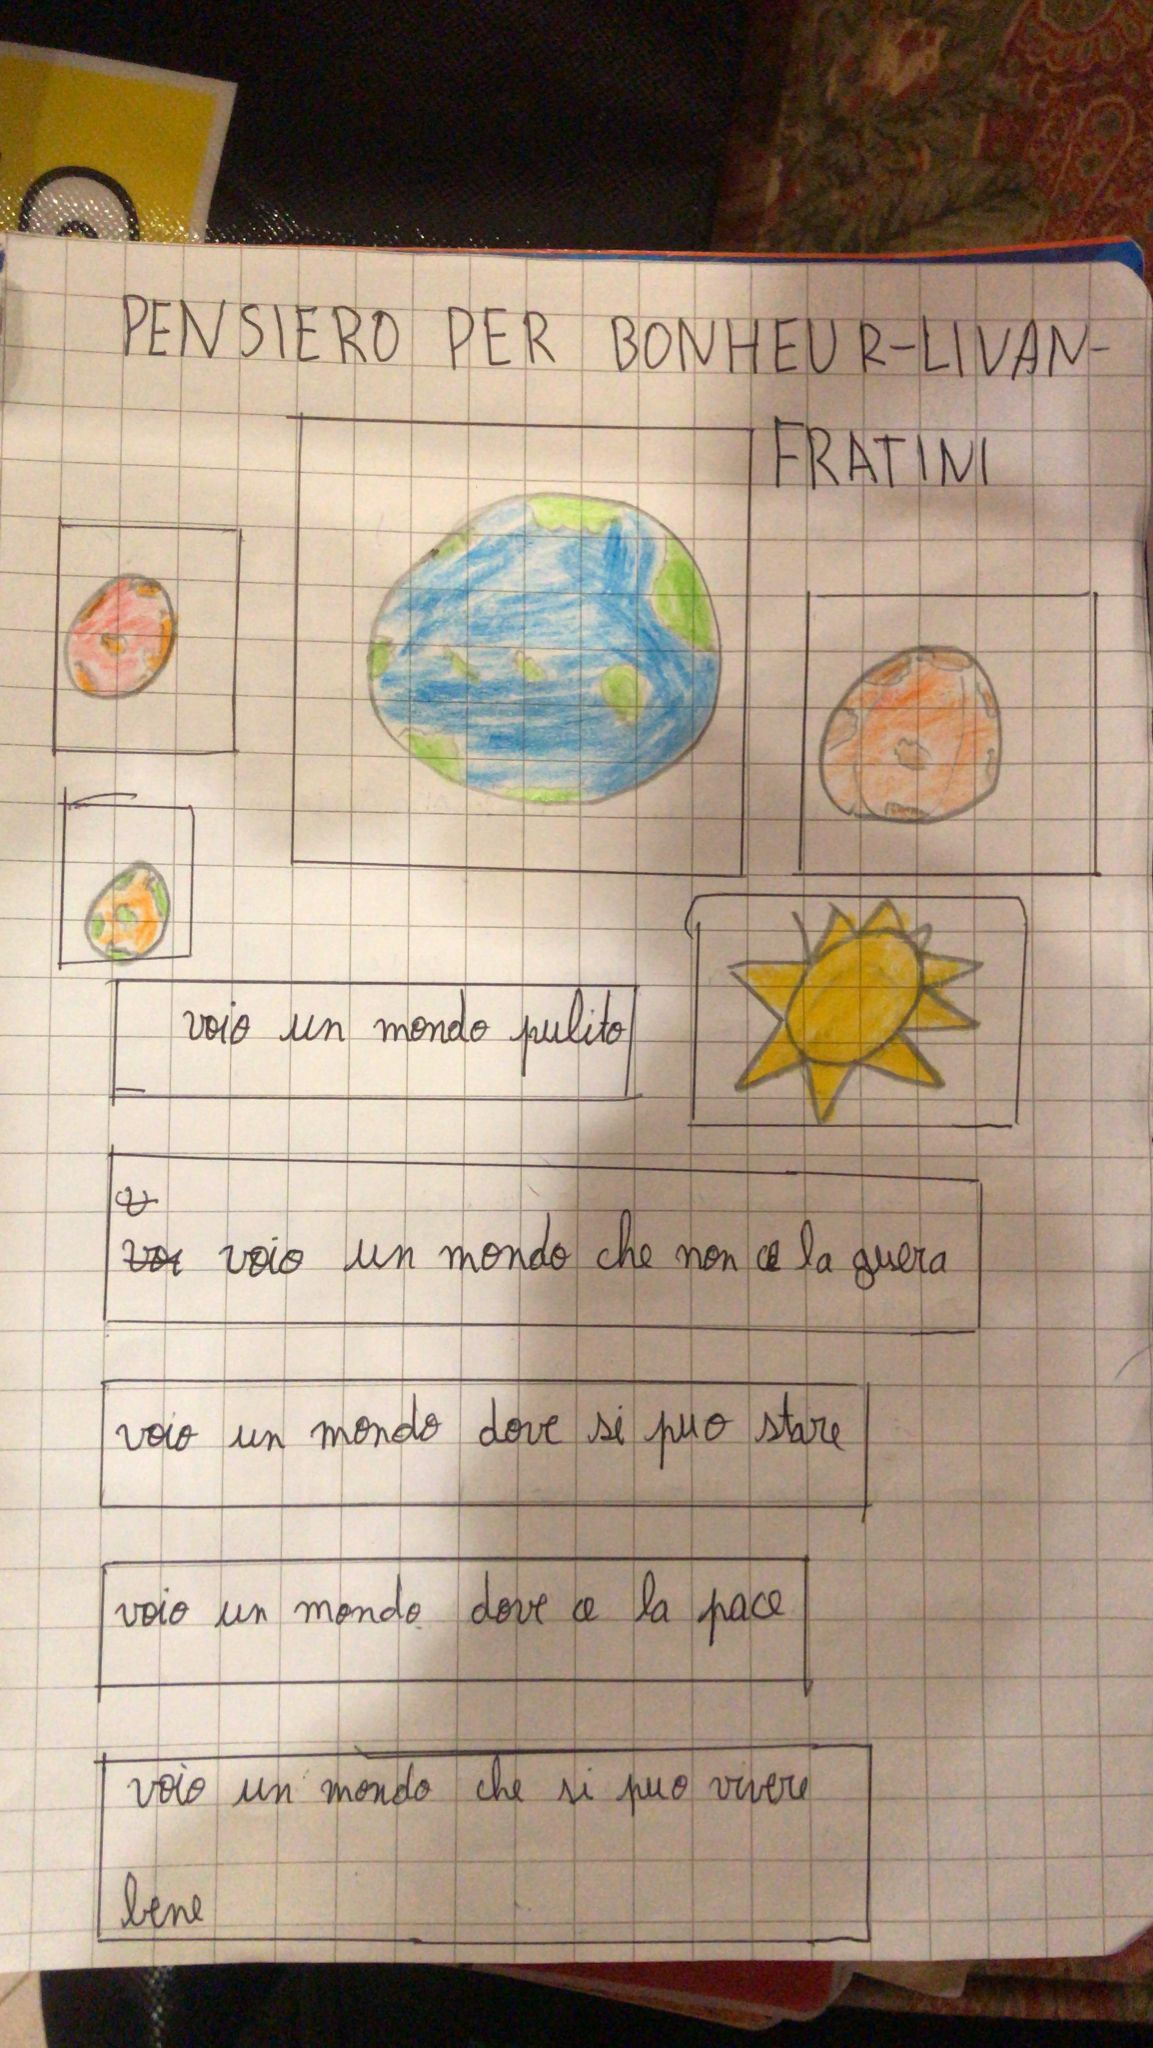 PENSIERO PER BONHEUR-LIVAN-
FRATINI
voio un mondo pulito
v
voi voio un mondo che non ce la guera
voio un mondo dove si puo stare
voio un mondo dove ce la pace
voio un mondo che si puo vivere
bene